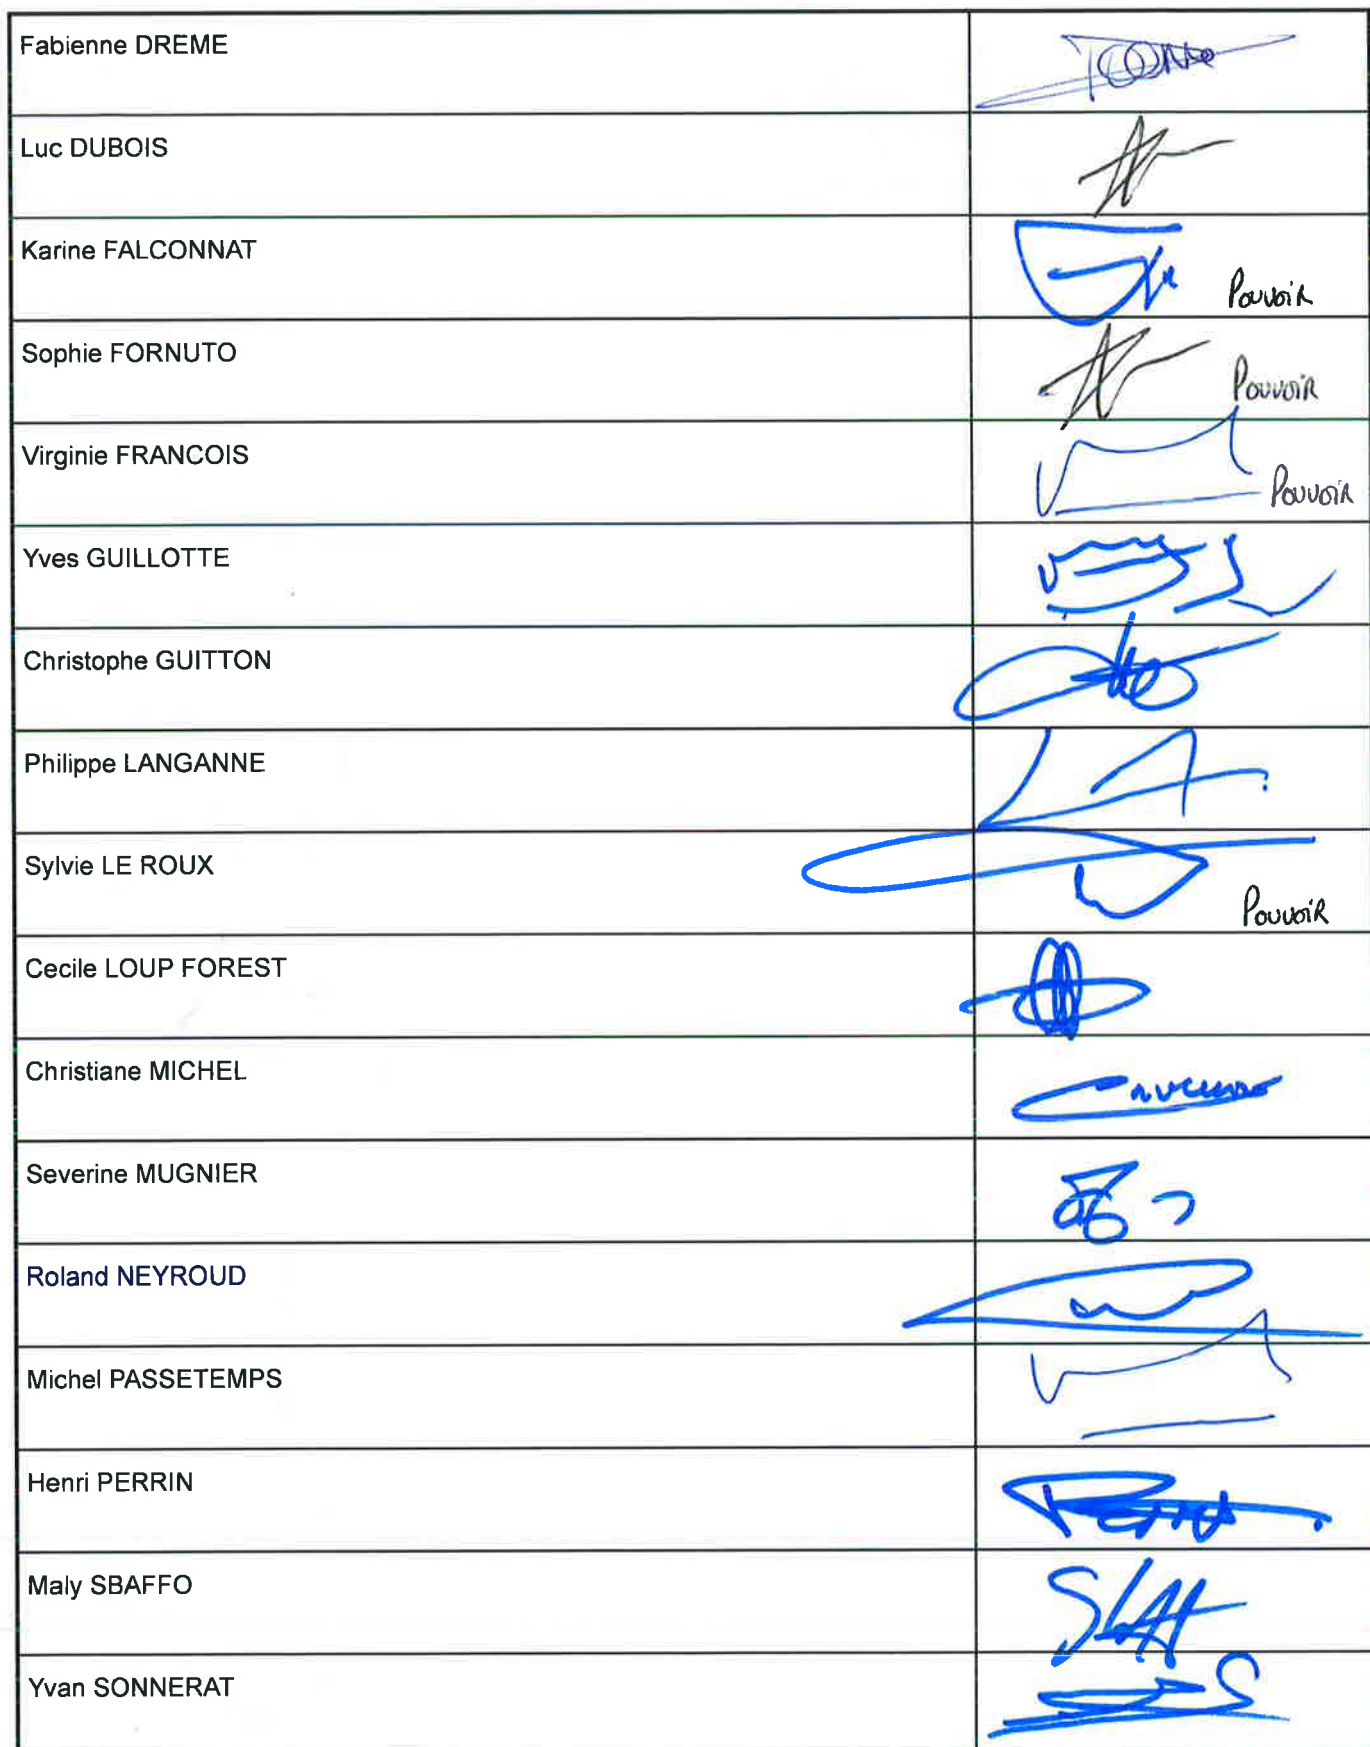 Fabienne DREME
Luc DUBOIS
Karine FALCONNAT
Pouvoir
Sophie FORNUTO
Pouvoir
Virginie FRANCOIS
Pouvoir
Yves GUILLOTTE
Christophe GUITTON
Philippe LANGANNE
Sylvie LE ROUX
Pouvoir
Cecile LOUP FOREST
Christiane MICHEL
Severine MUGNIER
Roland NEYROUD
Michel PASSETEMPS
Henri PERRIN
Maly SBAFFO
Yvan SONNERAT